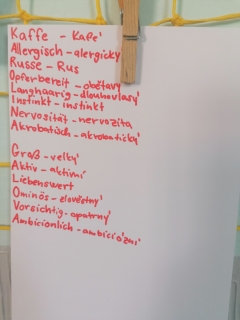 Kaffe - Kafe'
Allergisch - alergický
Russe - Rus
Opferbereit - obětavý
Langhaarig - dlouhovlasý
Instinkt - instinkt
Nervosität - nervozita
Akrobatisch - akrobatický
Groß - velký
Aktiv - aktivní
Liebenswert
Ominös - zlověstný
Vorsichtig - opatrný
Ambicionlich - ambiciózní